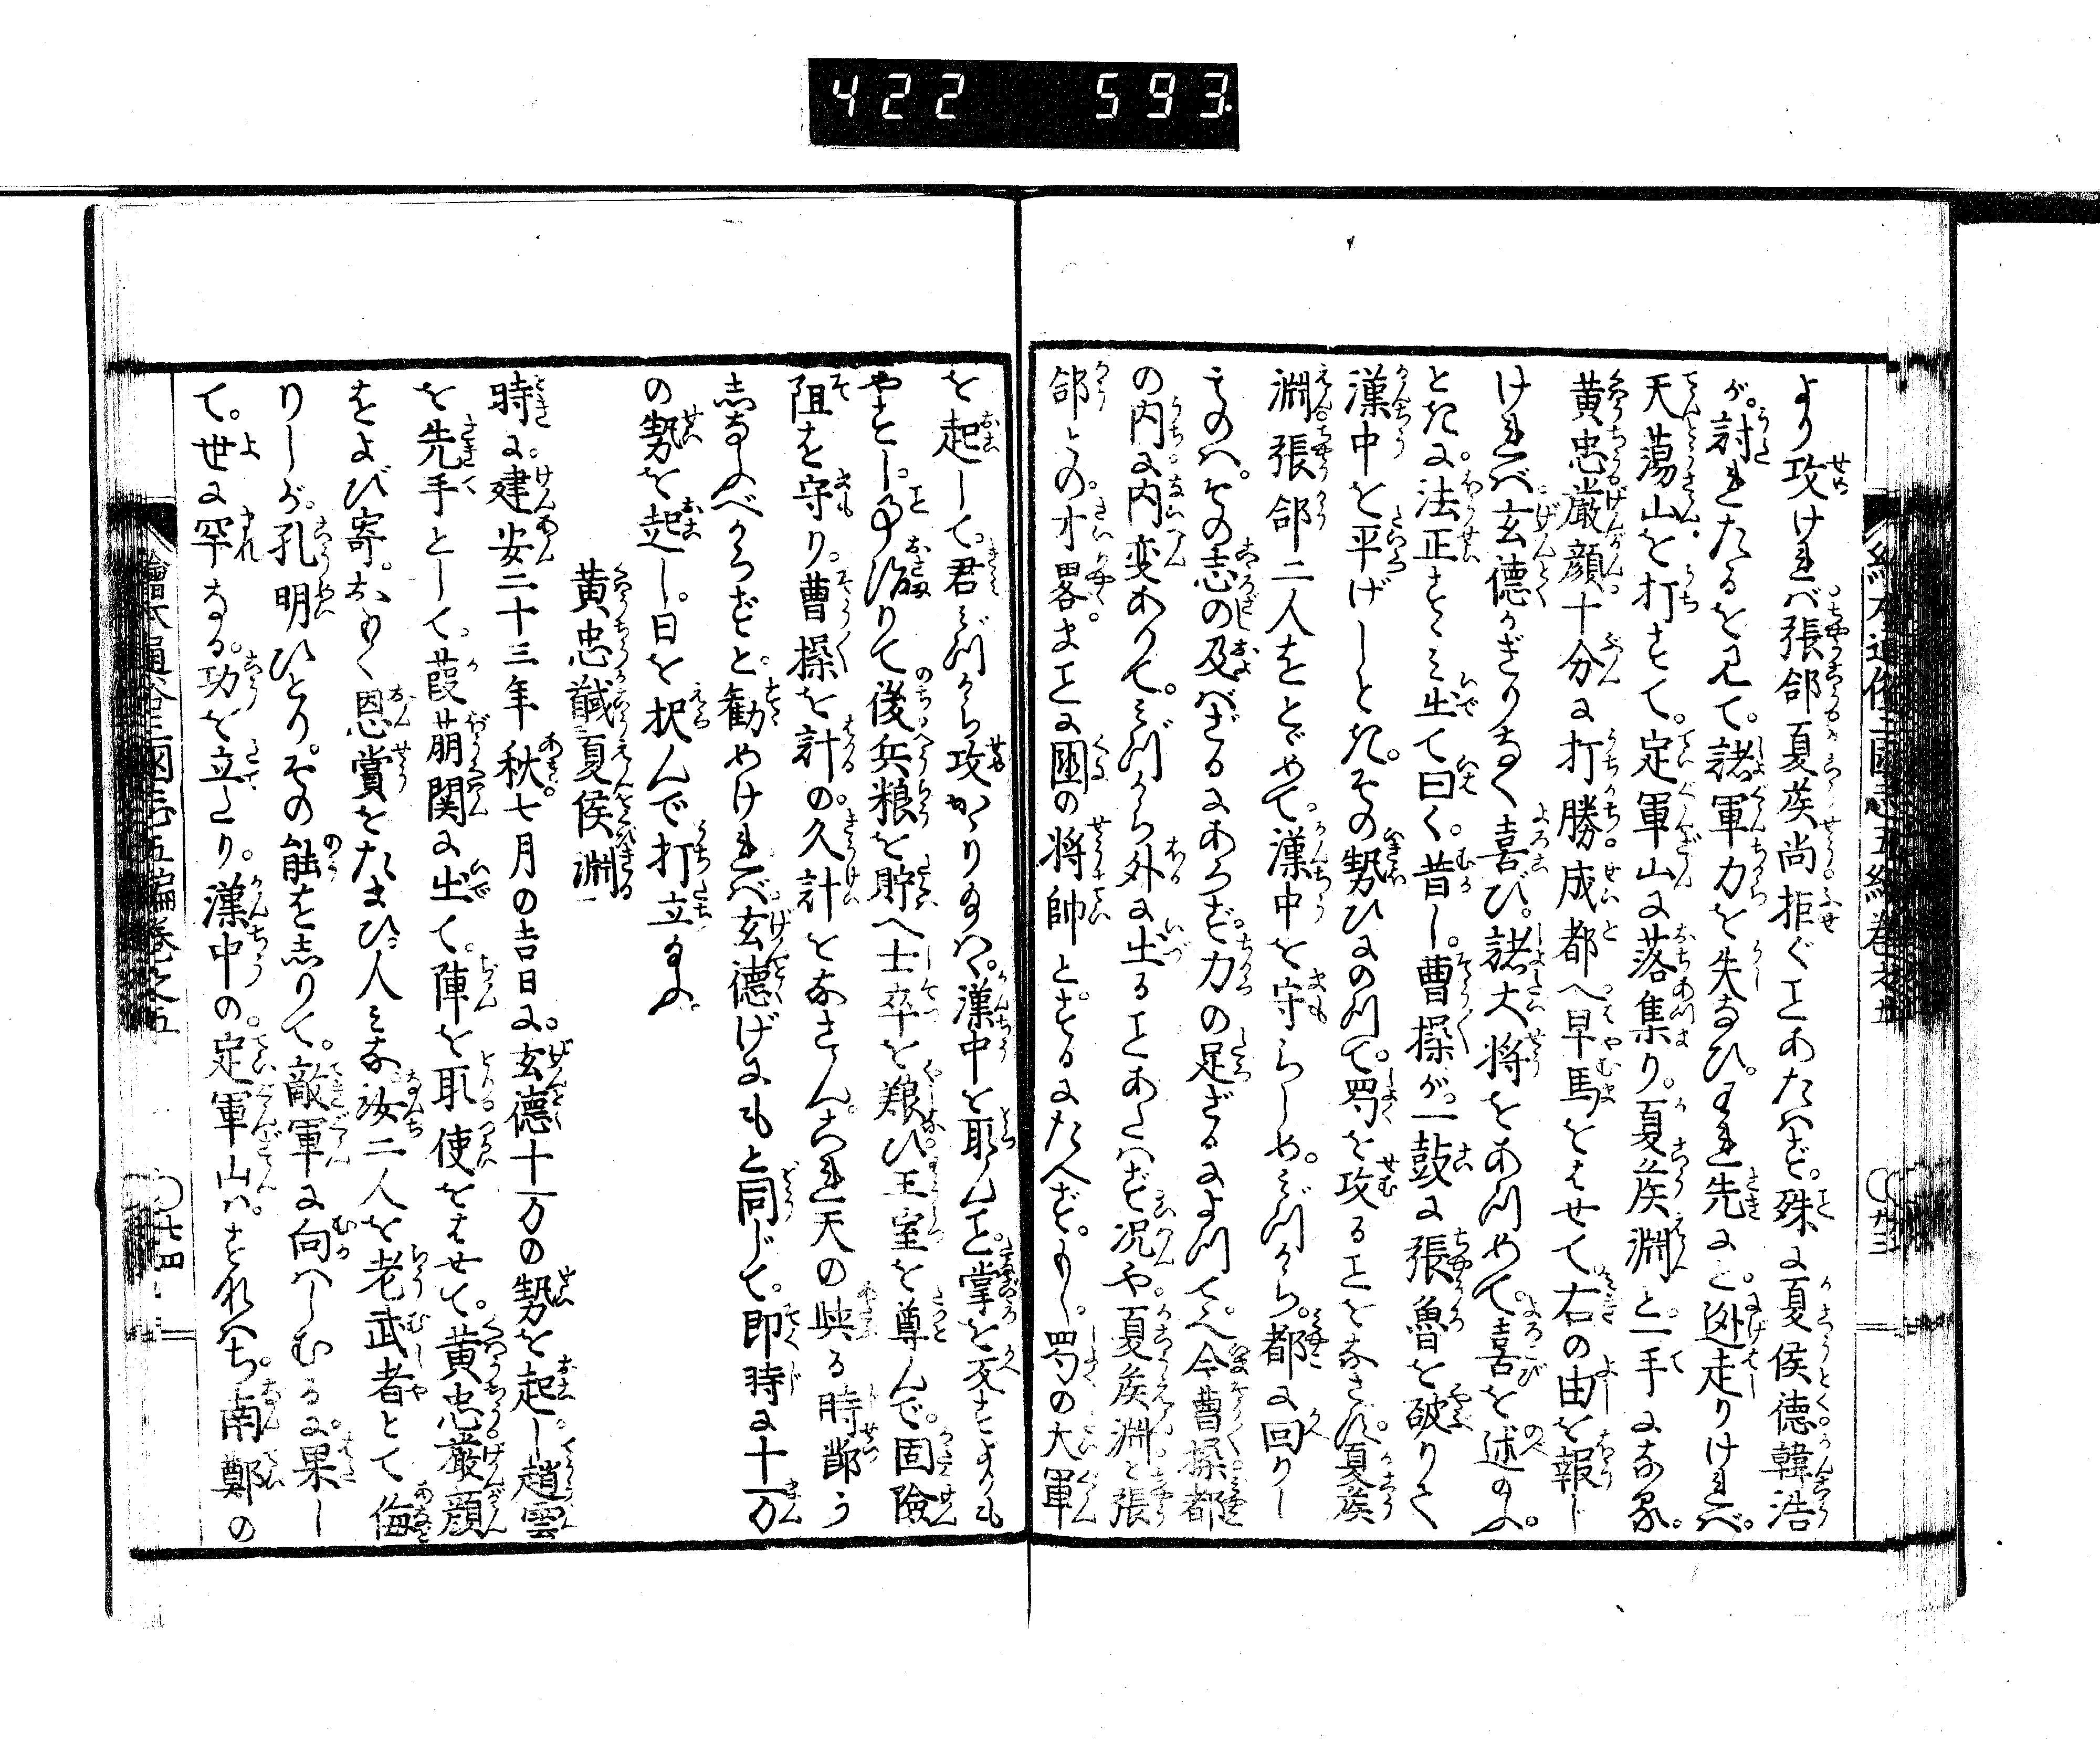 422 593
より攻ければ張郃夏侯尚拒ぐことあたはず。殊に夏侯徳韓浩
が。討れたるを見て。諸軍力を失なひ。われ先にと。迯走りければ。
天蕩山を打すて。定軍山に落集り。夏侯淵と一手になる。
黄忠厳顔十分に打勝。成都へ早馬をはせて右の由を報じ
ければ玄徳かぎりなく喜び。諸大将をあつめて。喜を述のふ。
ときに。法正すゝみ出て曰く。昔し。曹操が一鼓に張魯を破りて
漢中を平げしとき。その勢ひにのつて。蜀を攻ることをなさず。夏侯
淵張郃二人をとゞめて。漢中を守らしめ。みづから。都に回りし
ものは。その志の及ばざるにあらず。力の足ざるによつてへ。今曹操都
の内に内変ありて。みづから外に出ることあたはず況や。夏侯淵と張
郃との。才畧。まことに國の将帥とするにたへず。もし。蜀の大軍
を起して。君みづから攻かゝり給はゞ。漢中を取んこと。掌を反すよりも
やすし。事治りて後兵粮を貯へ士卒を糧ひ王室を尊んで。固險
阻を守り。曹操を計の。久計をなさん。これ天の與る時節う
しなふべからずと。勸めければ。玄徳げにもと同じて。即時に十万
の勢を起し。日を択んで打立給ふ。
黄忠馘夏侯淵
時に。建安二十三年秋七月の吉日に。玄徳十万の勢を起し。趙雲
を先手として。葭萌関に出て。陣を取使をはせて。黄忠厳顔
をよび寄。おもく恩賞をたまひ。人みな汝二人を老武者とて侮
りしが。孔明ひとり。その能をしりて。敵軍に向はしむるに。果し
て。世に罕なる。功を立たり。漢中の。定軍山は。すなはち。南鄭の
繪本通俗三國志五編巻之五
〇廿三
繪本通俗三國志五編巻之五
〇廿四